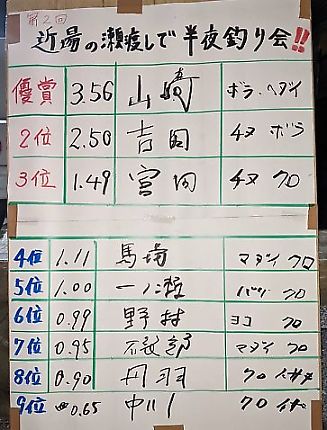 第2回
近場の瀬渡しで半夜釣り会!!
優賞 3.56 山崎 ボラ、ヘダイ
2位 2.50 吉田 チヌ ボラ
3位 1.49 宮田 チヌ クロ
4位 1.11 馬場 マダイ クロ
5位 1.00 一ノ瀬 バリ クロ
6位 0.99 野村 ヨコ クロ
7位 0.95 服部 マダイ クロ
8位 0.90 丹羽 クロ イサキ
9位 0.65 中川 クロ